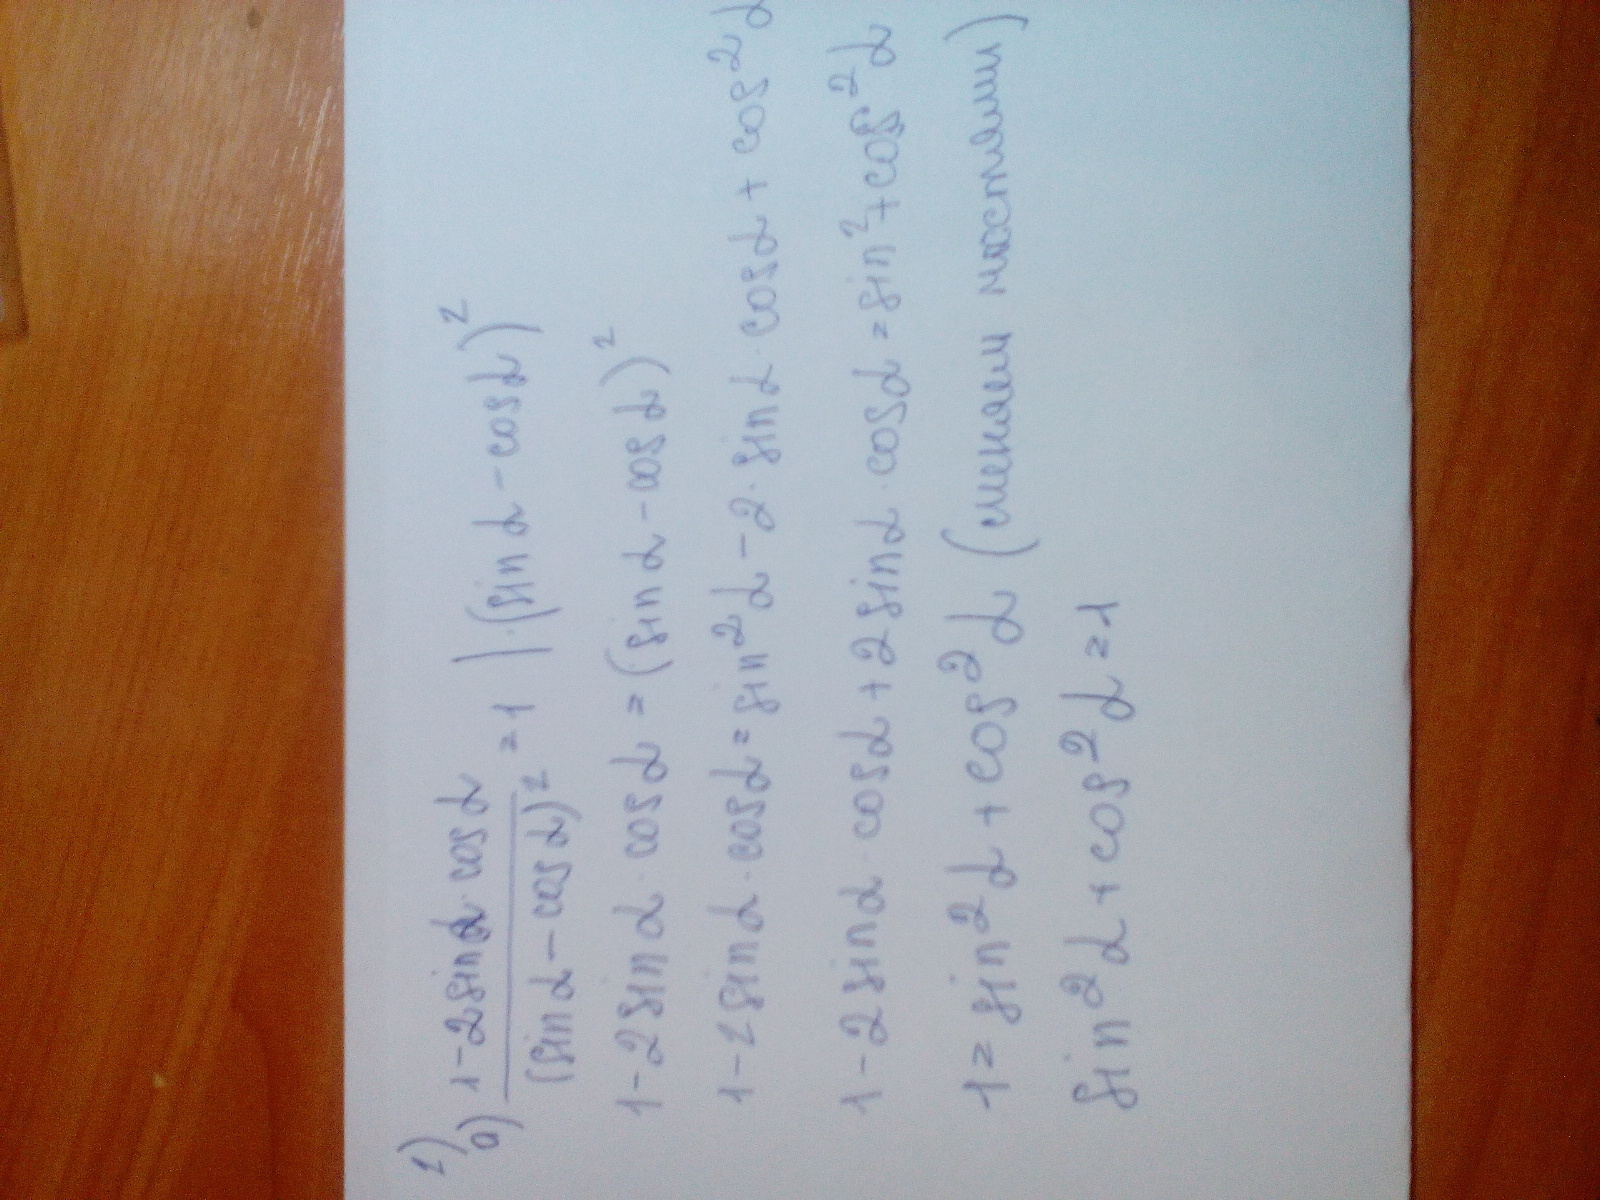 1)
а) 1-2sinα·cosα / (sinα-cosα)² =1 |·(sinα-cosα)²
1-2sinα·cosα=(sinα-cosα)²
1-2sinα·cosα=sin²α-2·sinα·cosα+cos²α
1-2sinα·cosα+2sinα·cosα=sin²+cos²α
1=sin²α+cos²α (меняем местами)
sin²α+cos²α=1